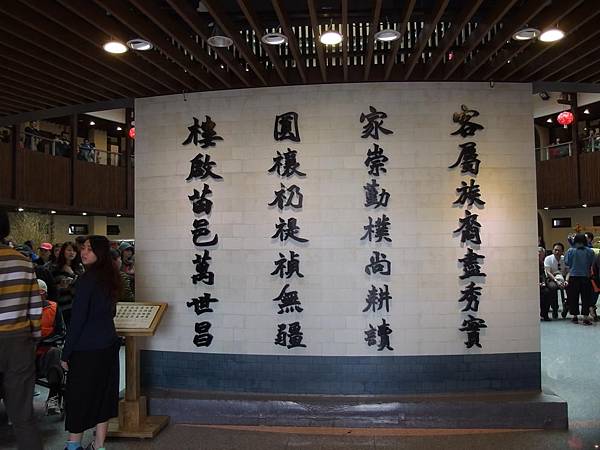 客屬族裔盡秀實
家崇勤樸尚耕讀
圓樓礽禔禎無疆
樓啟苗邑萬世昌